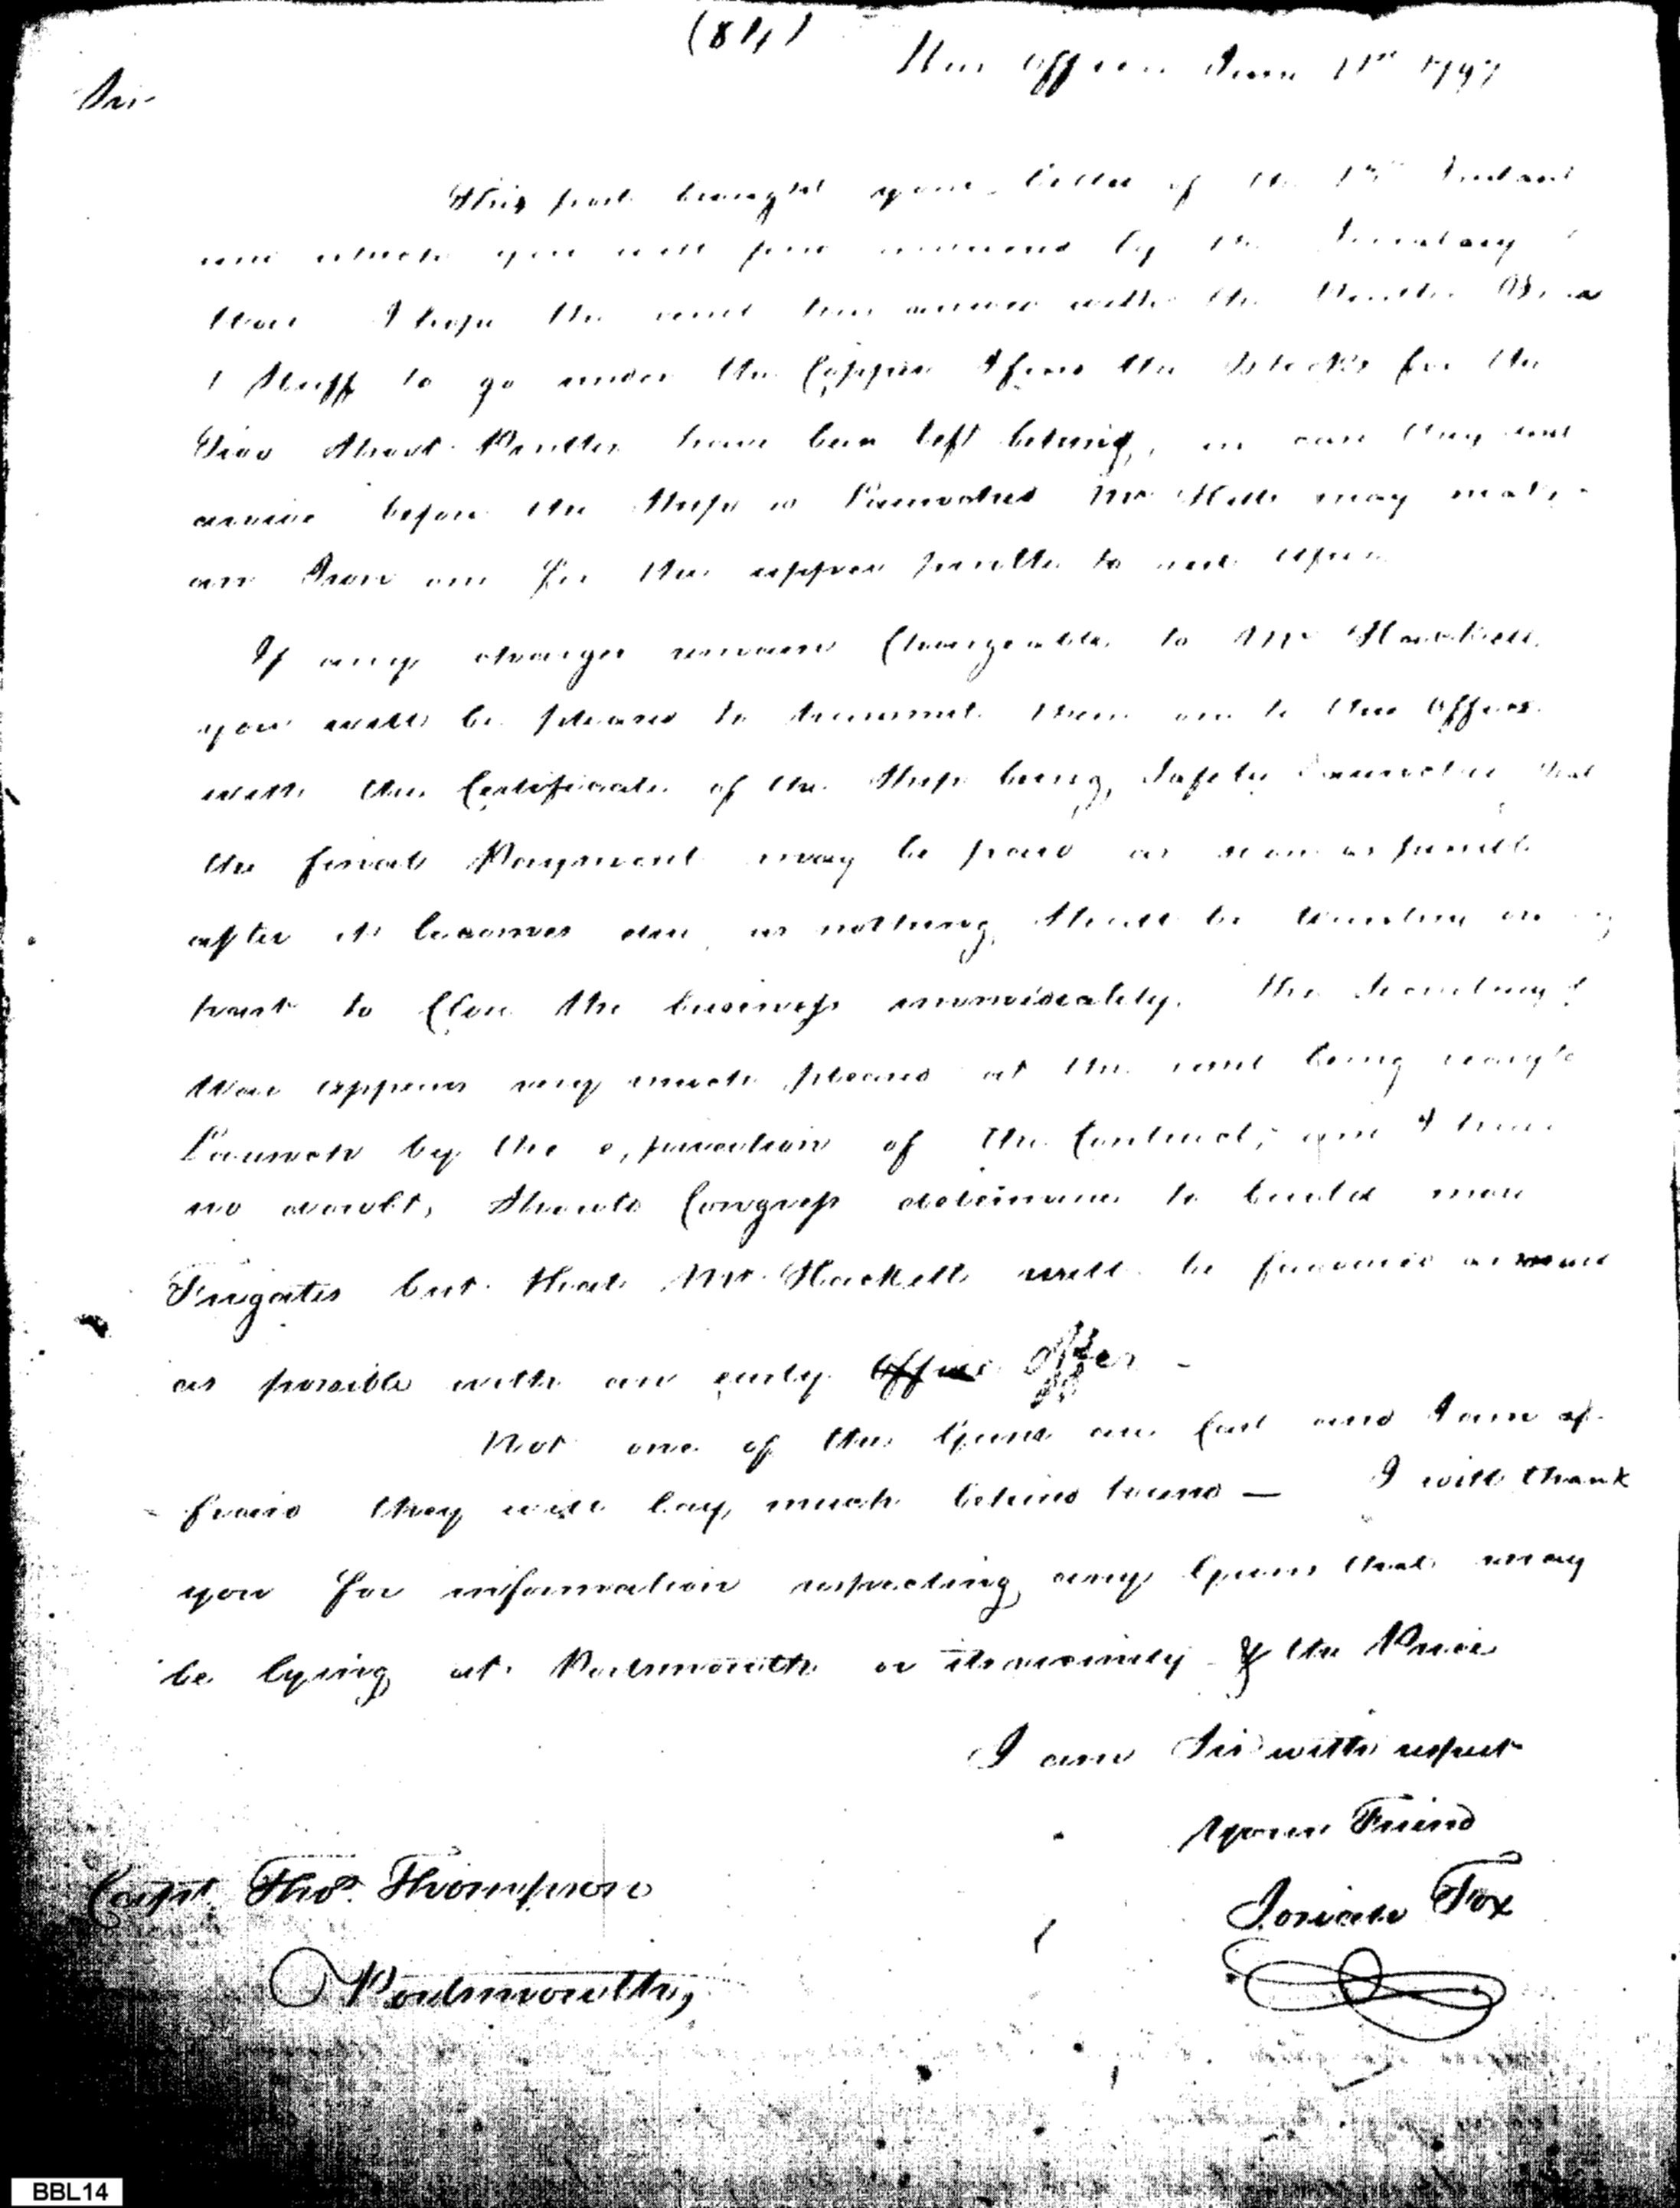 (84)
War Office June 1797
Sir
This post brought your letter of the Instant
which you will find answered by the Secretary
War I hope the vessel has arrived with the
Stuff to go under the Copper I fear the Blocks for the
Iron have been left behind, in case they
arrive before the Ship is Launched Mr may make
an Iron one for the upper to
If any charges remain Chargeable to Mr Hackett
you will be pleased to transmit them on to the Office
with the Certificate of the Ship being Safely Launched that
the final Payment may be paid as soon as possible
after it becomes due, as nothing shall be wanting on
part to Close the business immediately. The Secretary of
War appears very much pleased at the being ready to
Launch by the expiration of the Contract, and I have
no doubt, Should Congress determine to build more
Frigates but that Mr Hackett will be
as possible with an early Office Offer -
Not one of the Guns are Cast and I am af-
fraid they will lay much behind hand — I will thank
you for information respecting any Guns that may
be lying at Portsmouth or its vicinity & the Price
I am Sir with respect
Your Friend
Josiah Fox
Capt. Thos. Thompson
Portsmouth,
BBL14